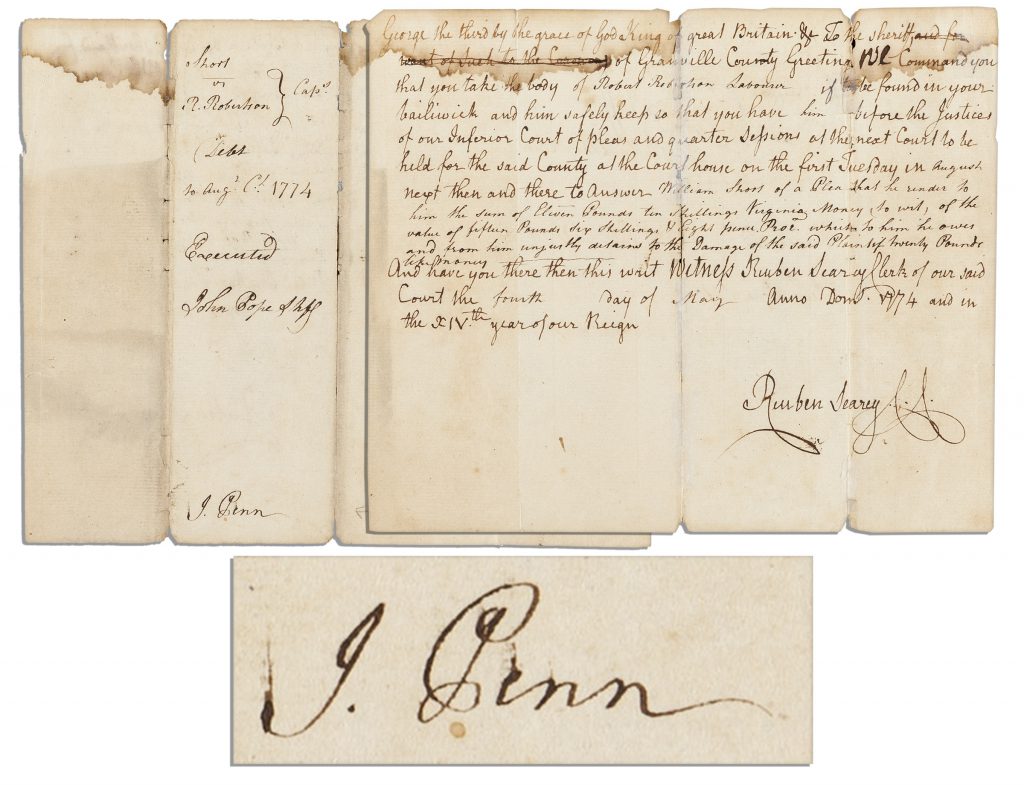 Short
vs
R. Robertson } Caps.
Debt
to Augt. Ct. 1774
Executed
John Pope Shff
J. Penn
George the third by the grace of God King of great Britain &c To the Sheriff and for
want of Such to the Coroner of Granville County Greeting We Command you
that you take the body of Robert Robertson Labourer if to be found in your
bailiwick and him safely keep so that you have him before the Justices
of our Inferior Court of pleas and quarter Sessions at the next Court to be
held for the said County at the Court house on the first Tuesday in August
next then and there to Answer William Short of a Plea that he render to
him the sum of Eleven Pounds ten Shillings Virginia Money, to wit, of the
value of fifteen Pounds Six Shillings & Eight penc. Proc. which to him he owes
and from him unjustly detains to the Damage of the said Plaintif twenty Pounds
like money
And have you there then this writ Witness Reuben Searcy Clerk of our said
Court the fourth day of May Anno Dom. 1774 and in
the XIV.th year of our Reign
Reuben Searcy C. J.
J. Penn